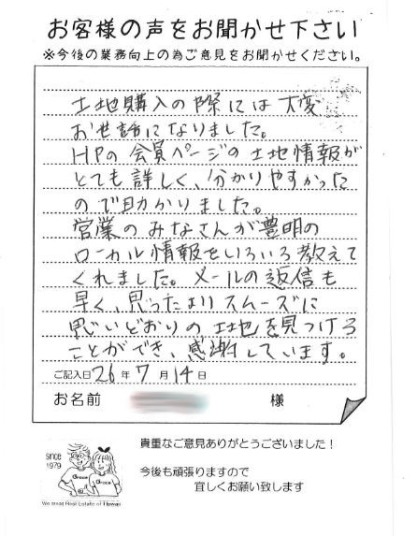 お客様の声をお聞かせ下さい
※今後の業務向上の為ご意見をお聞かせください。
土地購入の際には大変
お世話になりました。
HPの会員ページの土地情報が
とても詳しく、分かりやすかった
ので助かりました。
営業のみなさんが豊明の
ローカル情報をいろいろ教えて
くれました。メールの返信も
早く、思ったよりスムーズに
思いどおりの土地を見つける
ことができ、感謝しています。
ご記入日26年7月14日
お名前 様
貴重なご意見ありがとうございました！
since
1979
今後も頑張りますので
宜しくお願い致します
We treat Real Estate of